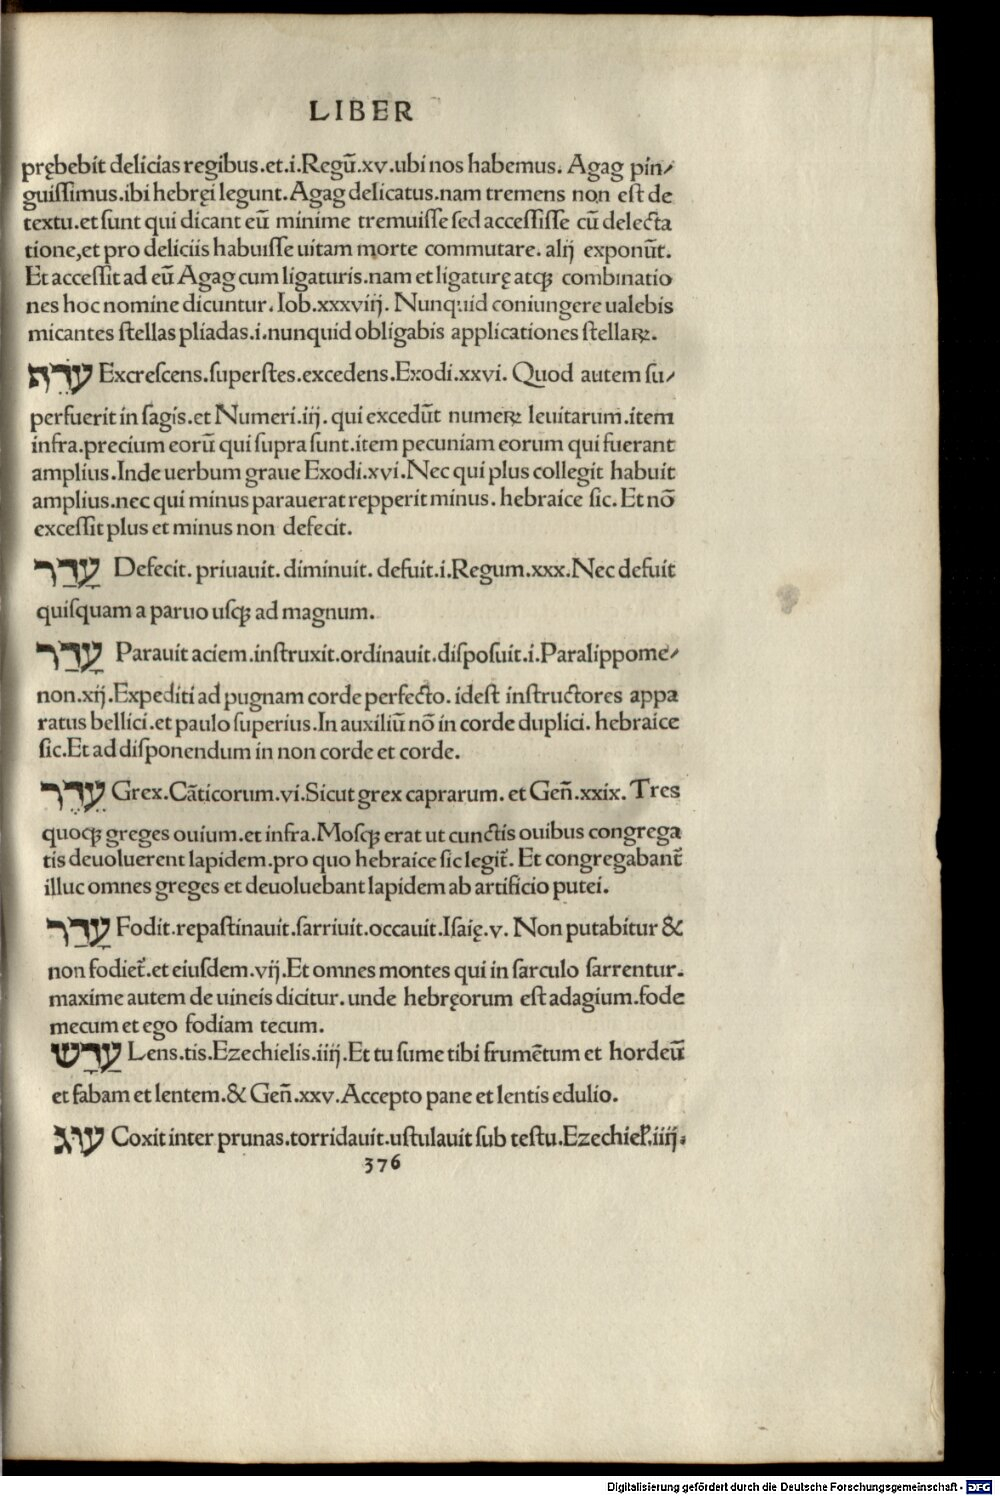 LIBER
prębebit delicias regibus.et.i.Regū.xv.ubi nos habemus. Agag pin⸗
guiſſimus.ibi hebręi legunt.Agag delicatus.nam tremens non eſt de
textu.et ſunt qui dicant eū minime tremuiſſe ſed acceſſiſſe cū delecta
tione,et pro deliciis habuiſſe uitam morte commutare. alij exponūt.
Et acceſſit ad eū Agag cum ligaturis.nam et ligaturę atqꝫ combinatio
nes hoc nomine dicuntur. Iob.xxxviij. Nunquid coniungere ualebis
micantes ſtellas plíadas.i.nunquid obligabis applicationes ſtellaꝝ.
עֹדֵף Excreſcens.ſuperſtes.excedens.Exodi.xxvi. Quod autem ſu⸗
perfuerit in ſagis.et Numeri.iij. qui excedūt numeꝝ leuitarum.item
infra.precium eorū qui ſupra ſunt.item pecuniam eorum qui fuerant
amplius.Inde uerbum graue Exodi.xvi. Nec qui plus collegit habuit
amplius.nec qui minus parauerat repperit minus. hebraice ſic. Et nō
exceſſit plus et minus non defecit.
עָדַר Defecit. priuauit. diminuit. defuit.i.Regum.xxx.Nec defuit
quiſquam a paruo uſqꝫ ad magnum.
עָדַר Parauit aciem.inſtruxit.ordinauit.diſpoſuit.i.Paralippome⸗
non.xij.Expediti ad pugnam corde perfecto. ideſt inſtructores appa
ratus bellici.et paulo ſuperius.In auxiliū nō in corde duplici. hebraice
ſic.Et ad diſponendum in non corde et corde.
עֵדֶר Grex.Cāticorum.vi.Sicut grex caprarum. et Geñ.xxix. Tres
quoqꝫ greges ouium.et infra.Moſqꝫ erat ut cunctis ouibus congrega
tis deuoluerent lapidem.pro quo hebraice ſic legit̃. Et congregabant̃
illuc omnes greges et deuoluebant lapidem ab artificio putei.
עָדַר Fodit.repaſtinauit.ſarriuit.occauit.Iſaię.v. Non putabitur &
non fodiet̃.et eiuſdem.vij.Et omnes montes qui in ſarculo ſarrentur.
maxime autem de uineis dicitur. unde hebręorum eſt adagium.fode
mecum et ego fodiam tecum.
עָדַשׁ Lens.tis.Ezechielis.iiij.Et tu ſume tibi frumētum et hordeū
et fabam et lentem.& Geñ.xxv.Accepto pane et lentis edulio.
עוּג Coxit inter prunas.torridauit.uſtulauit ſub teſtu.Ezechieƚ.iiij.
376
Digitalisierung gefördert durch die Deutsche Forschungsgemeinschaft - DFG